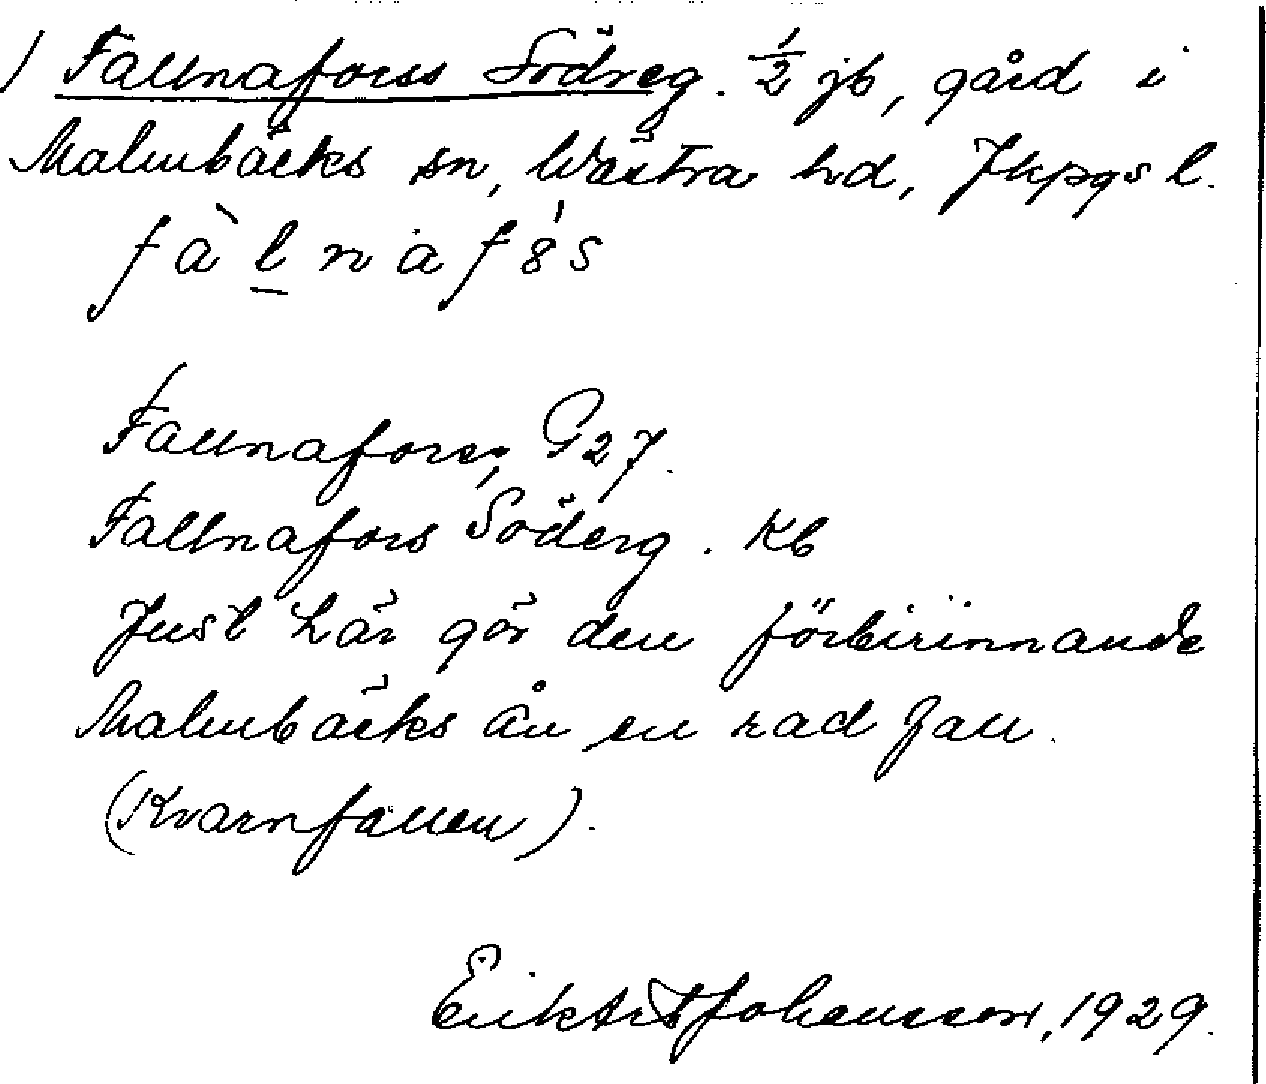 1) Fallnaforss Södreg. 1/2 jb, gård i
Malmbäcks sn, Västra hd, Jkpgs l.
fàlnafo̍s
Fallnafors, G27.
Fallnafors Söderg. Kb
Just här gör den förbirinnande
Malmbäcks ån en rad fall.
(Kvarnfallen).
Johansson, 1929.